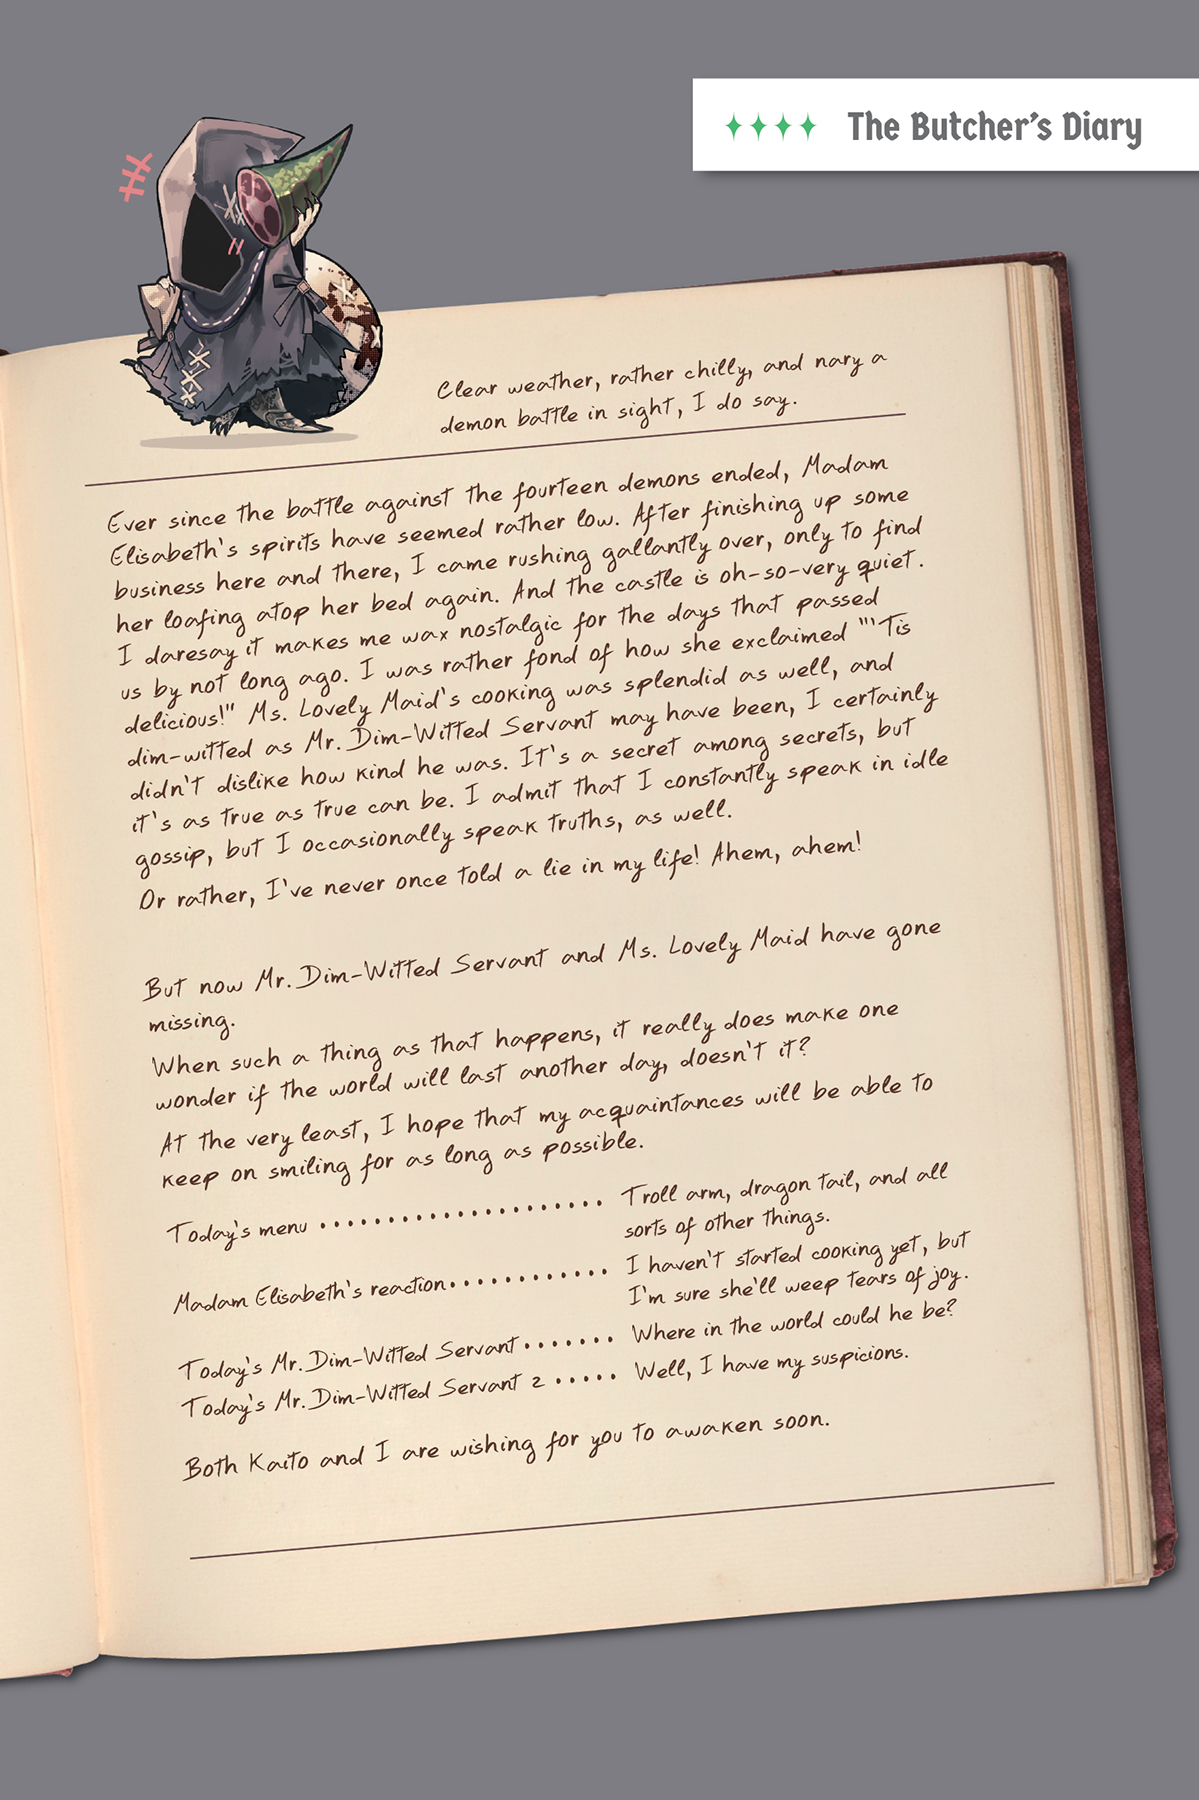 The Butcher's Diary
Clear weather, rather chilly, and nary a
demon battle in sight, I do say.
Ever since the battle against the fourteen demons ended, Madam
Elisabeth's spirits have seemed rather low. After finishing up some
business here and there, I came rushing gallantly over, only to find
her loafing atop her bed again. And the castle is oh-so-very quiet.
I daresay it makes me wax nostalgic for the days that passed
us by not long ago. I was rather fond of how she exclaimed "'Tis
delicious!" Ms. Lovely Maid's cooking was splendid as well, and
dim-witted as Mr. Dim-Witted Servant may have been, I certainly
didn't dislike how kind he was. It's a secret among secrets, but
it's as true as true can be. I admit that I constantly speak in idle
gossip, but I occasionally speak truths, as well.
Or rather, I've never once told a lie in my life! Ahem, ahem!
But now Mr. Dim-Witted Servant and Ms. Lovely Maid have gone
missing.
When such a thing as that happens, it really does make one
wonder if the world will last another day, doesn't it?
At the very least, I hope that my acquaintances will be able to
keep on smiling for as long as possible.
Today's menu ..................... Troll arm, dragon tail, and all
sorts of other things.
Madam Elisabeth's reaction............ I haven't started cooking yet, but
I'm sure she'll weep tears of joy.
Today's Mr. Dim-Witted Servant ....... Where in the world could he be?
Today's Mr. Dim-Witted Servant 2 ..... Well, I have my suspicions.
Both Kaito and I are wishing for you to awaken soon.